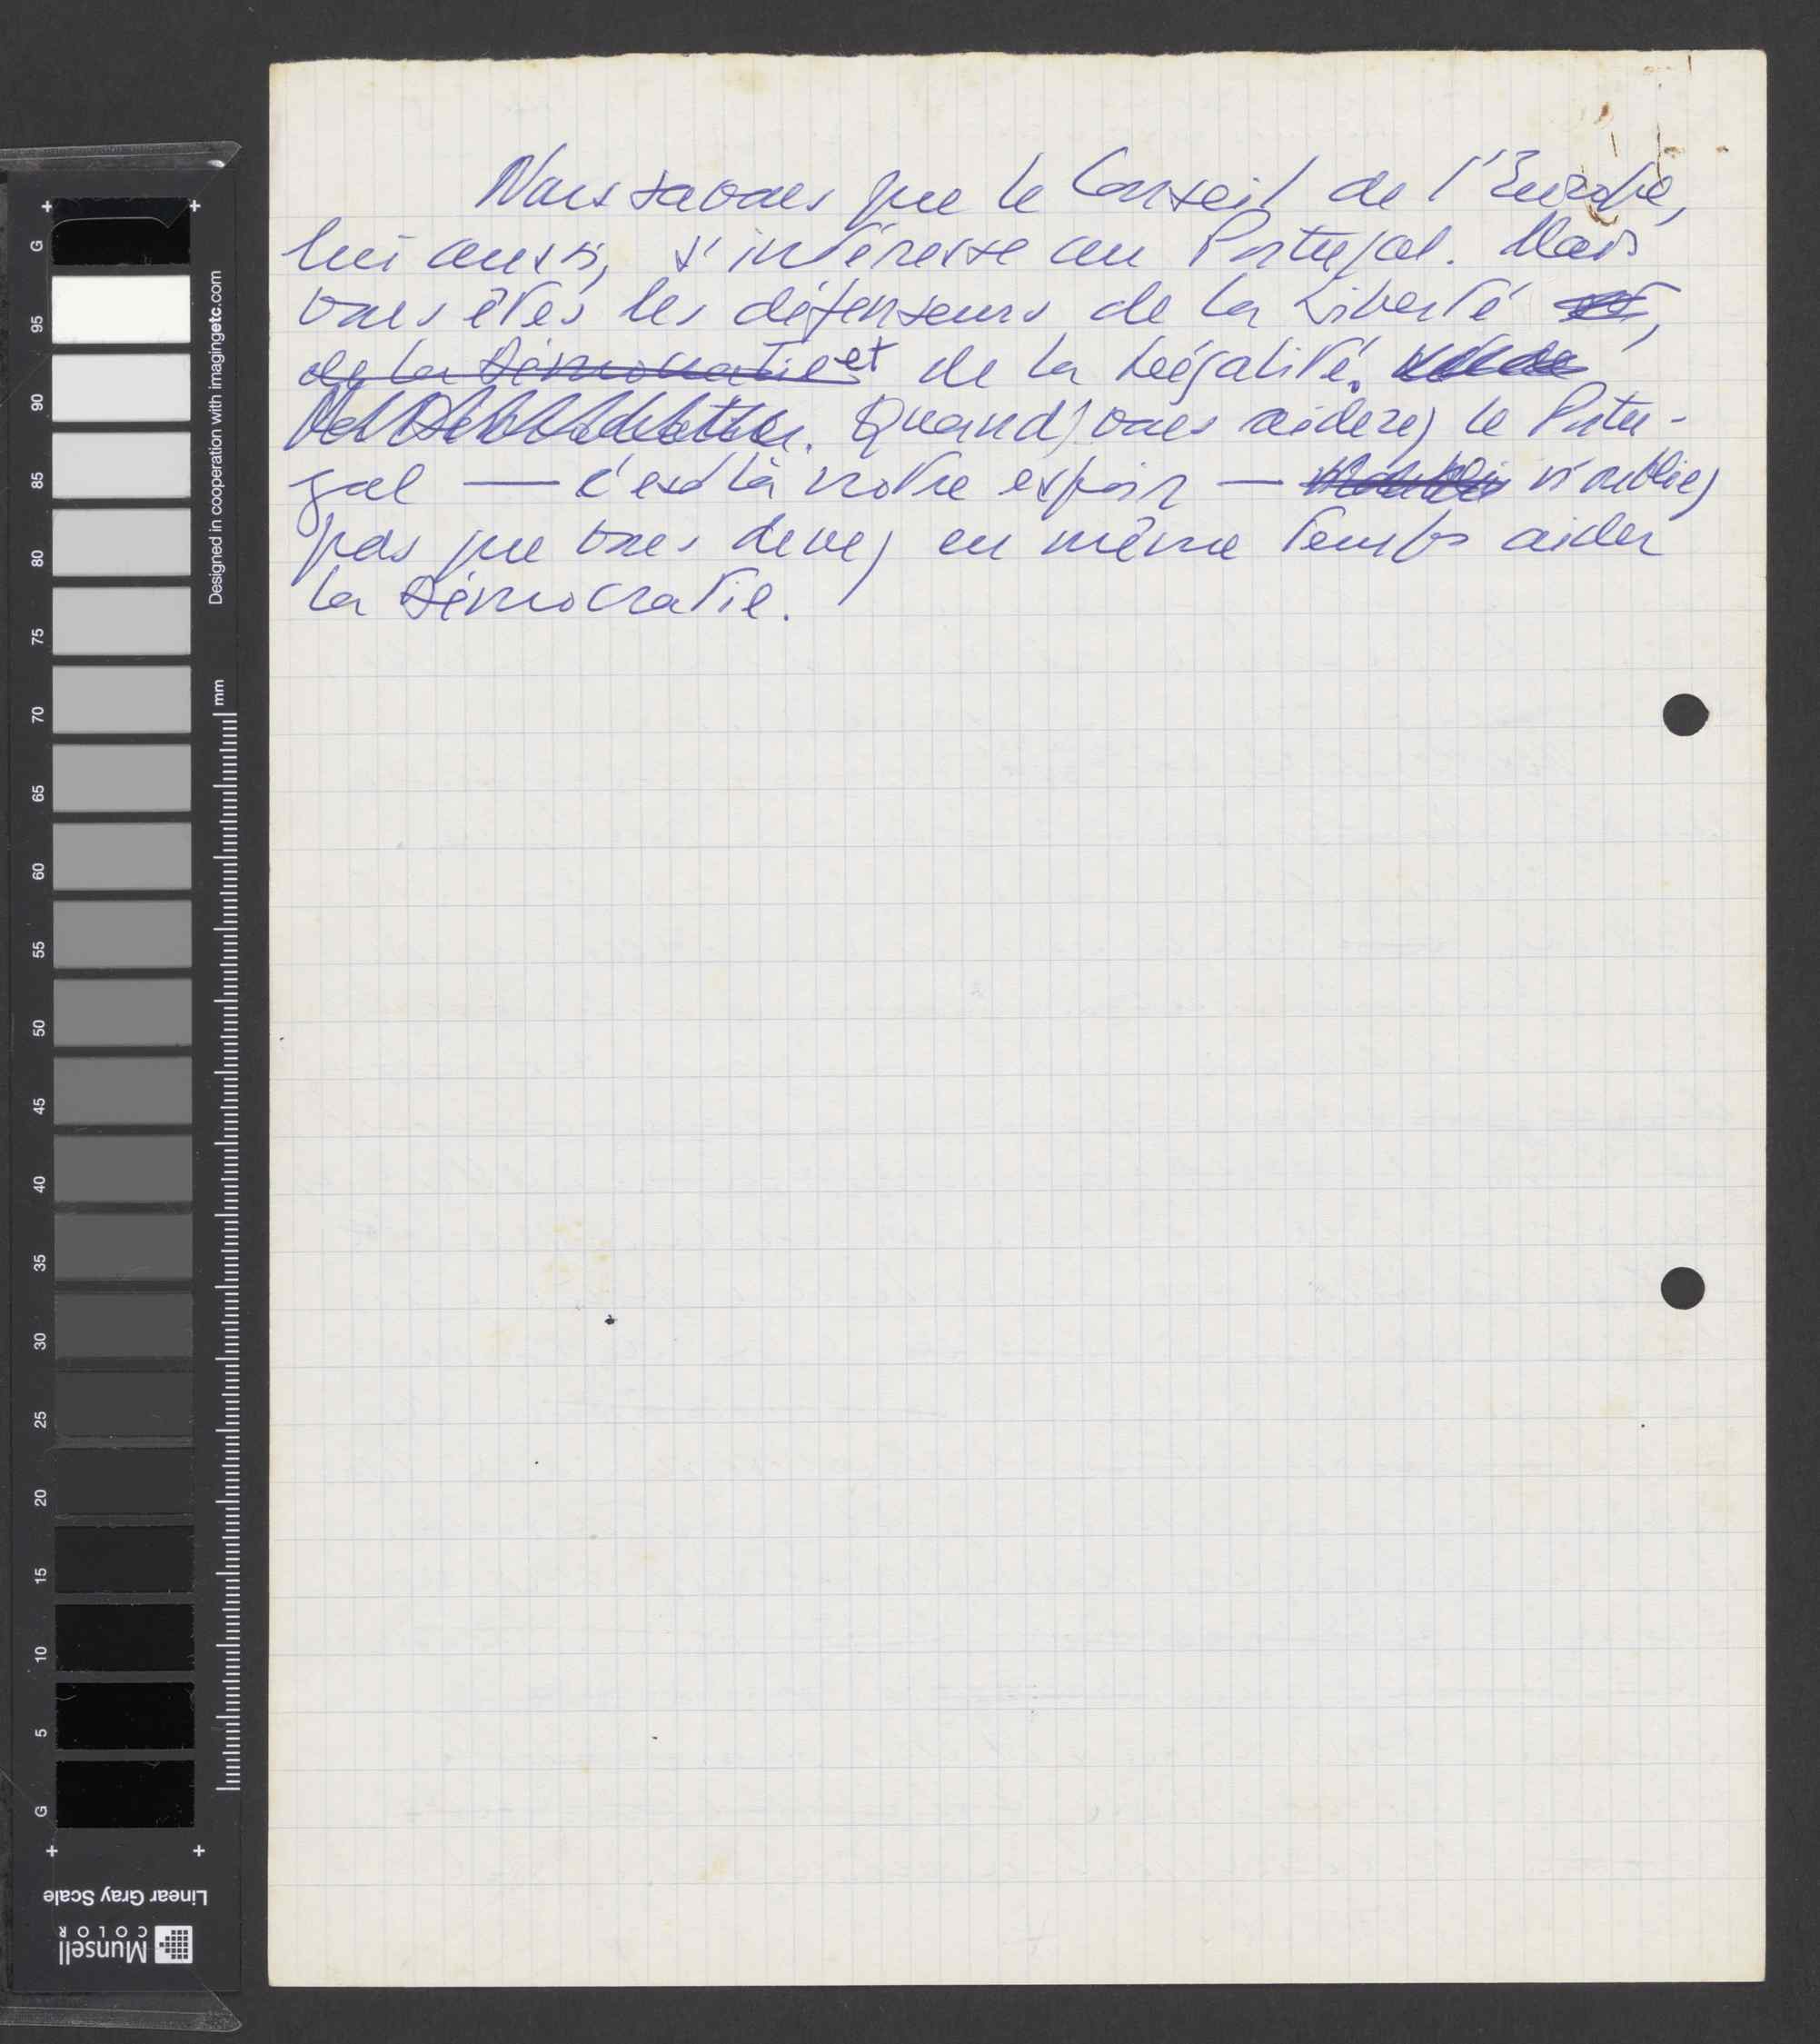 Nous savons que le Conseil de l'Europe,
lui aussi, s'intéresse au Portugal. Mais
vous êtes les défenseurs de la Liberté et,
de la Démocratie et de la Légalité.
Quand vous aiderez le Portu-
gal — c'est là notre espoir — n'oubliez
pas que vous devez en même temps aider
la Démocratie.
Designed in cooperation with imagingetc.com
mm
G
95
90
85
80
75
70
65
60
55
50
45
40
35
30
25
20
15
10
5
G
Linear Gray Scale
Munsell
COLOR